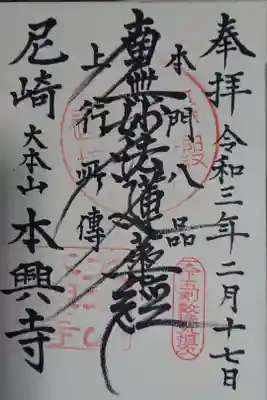 奉拝 令和三年二月十七日
本門八品
南無妙法蓮華経
上行所傳
尼崎 大本山 本興寺